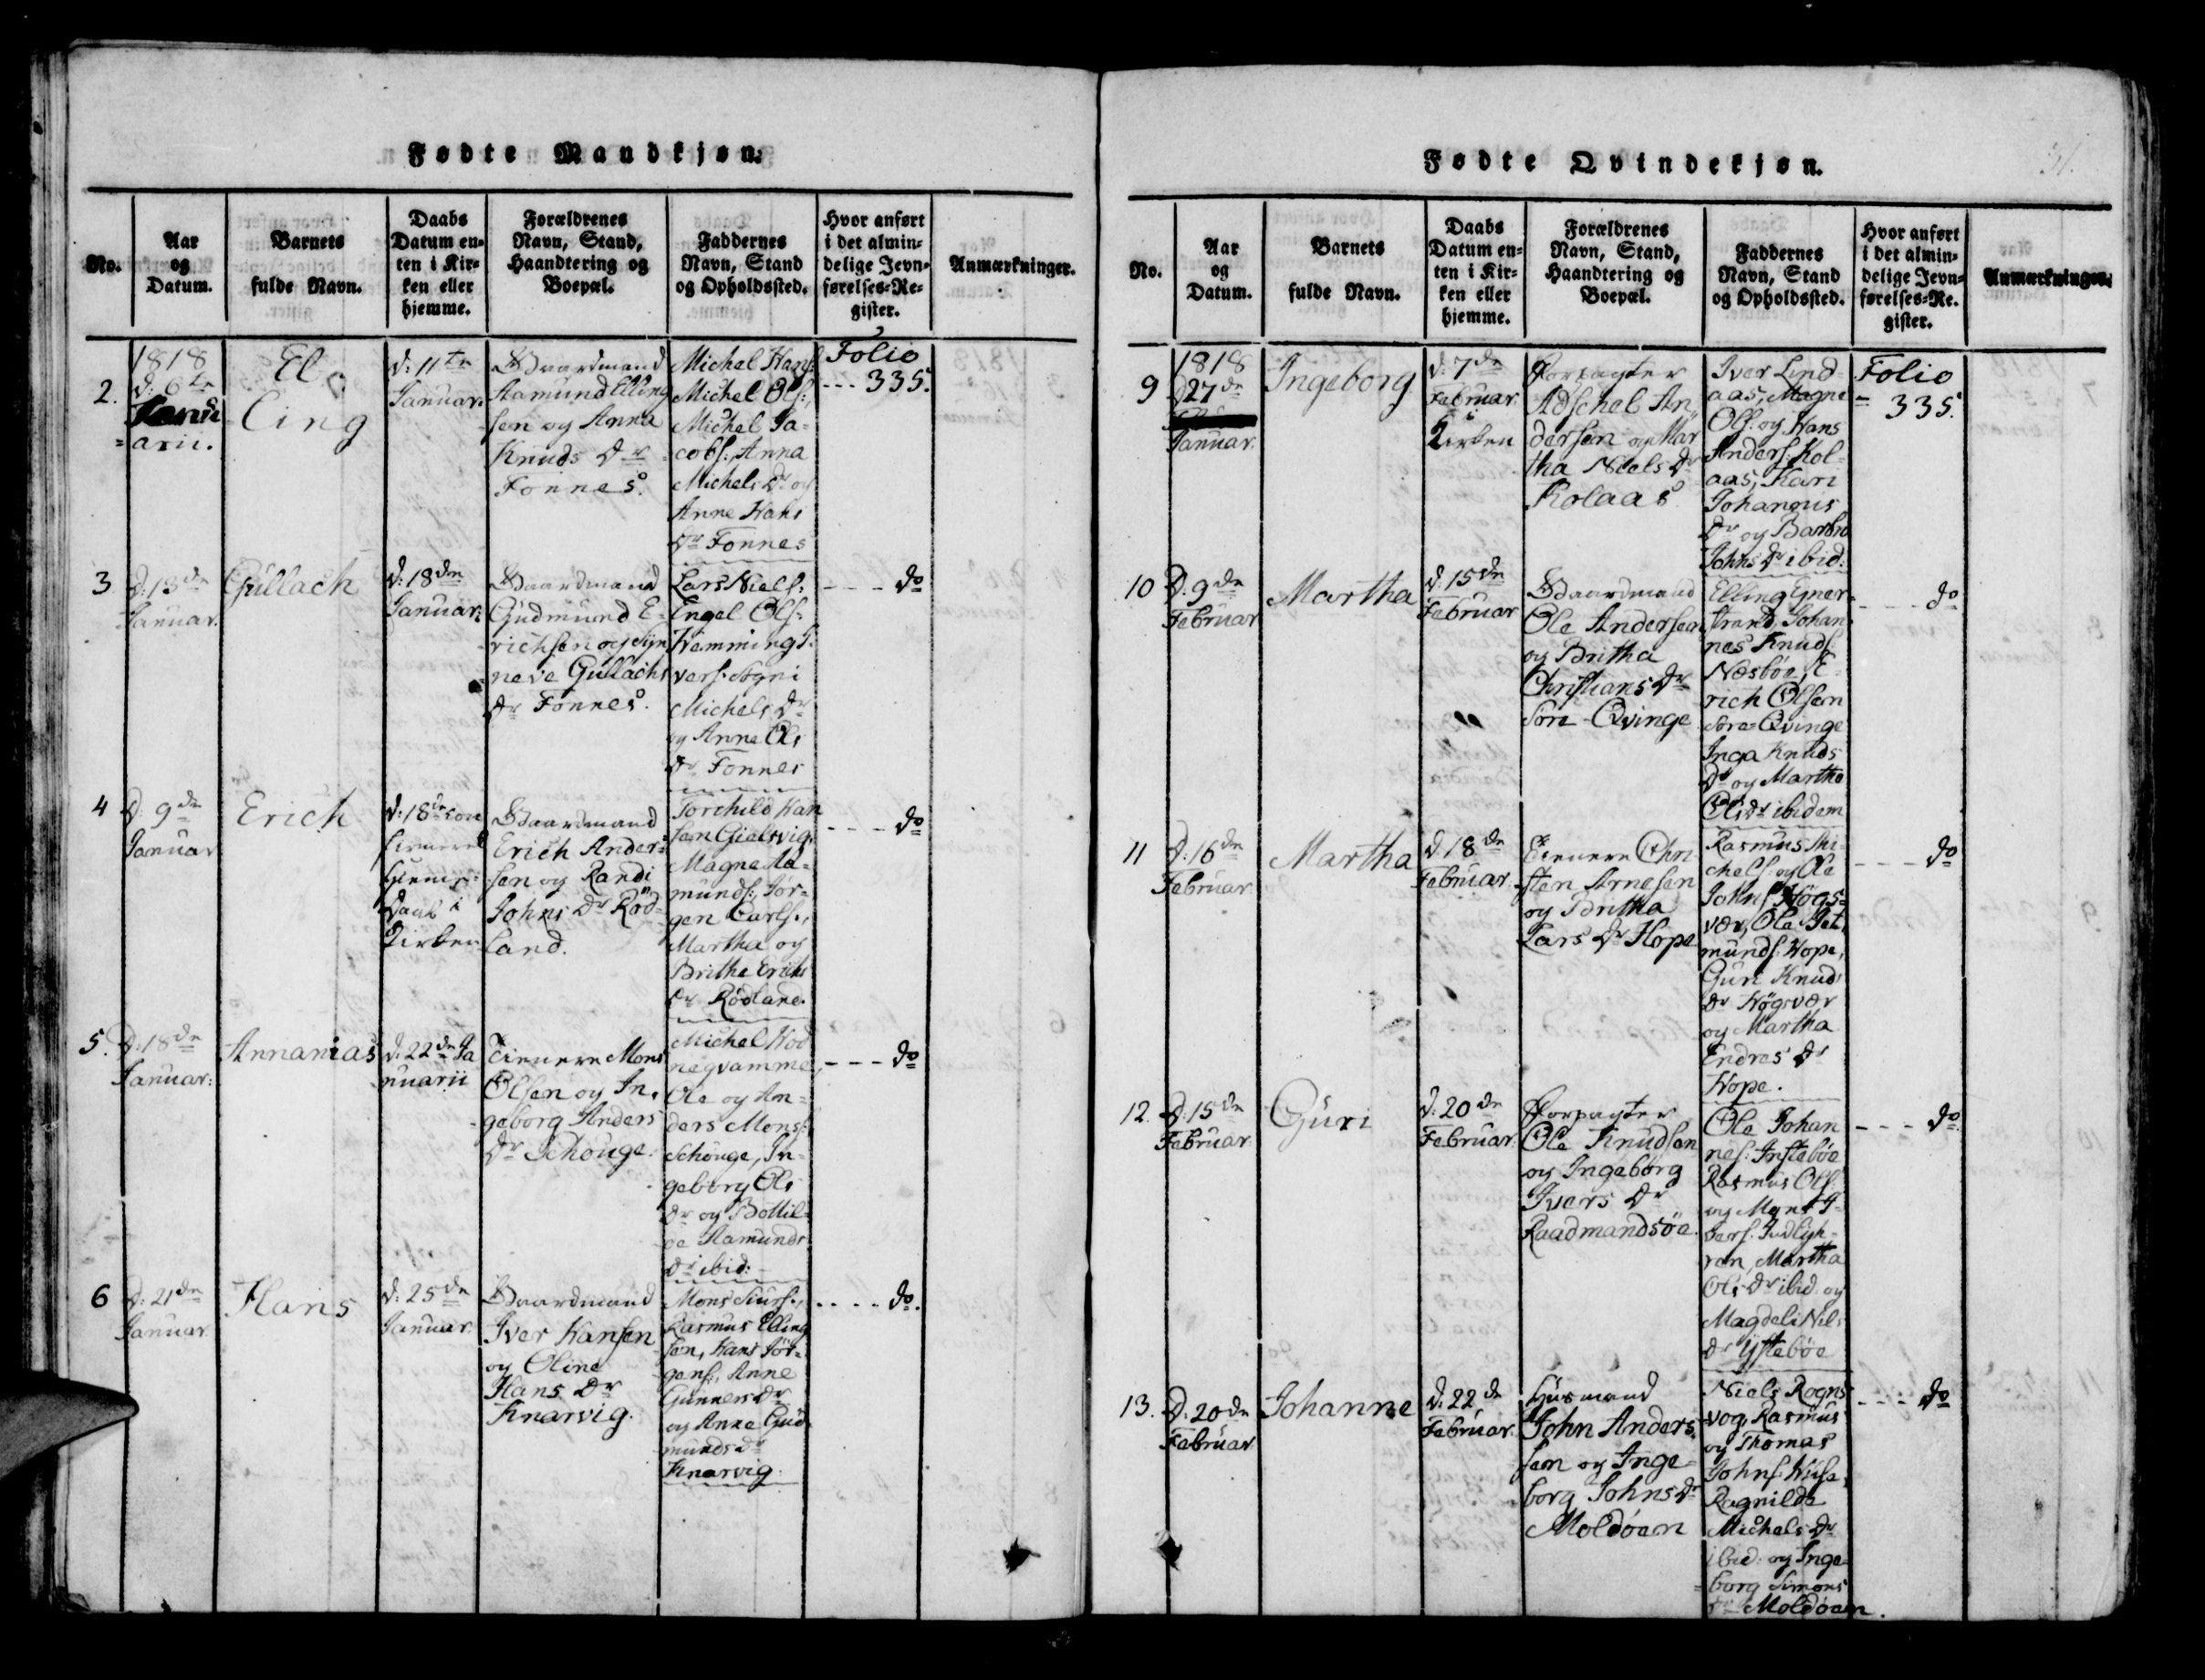 Fødte Mandkjøn.
No.
Aar
og
Datum.
Barnets
fulde Navn.
Daabs
Datum en-
ten i Kir-
ken eller
hjemme.
Forældrenes
Navn, Stand,
Haandtering og
Boepæl.
Faddernes
Navn, Stand
og Opholdssted.
Hvor anført
i det almin-
delige Jevn-
førelses-Re-
gister.
Anmærkninger.
2.
1818
d: 6te
Janu
=arii.
El
ling
d: 11te
Januar.
Gaardmand
Aamund Elling
sen og Anna
Knuds Dr
Fonnes.
Michel Hans:
Michel Ols:,
Michel Ja-
cobs:, Anna
Michels Dr og
Anne Hans
Dr Fonnes
Folio
--- 335.
3
D: 13de
Januar.
Gullach
d: 18den
Januar:
Gaardmand
Gudmund E-
richsen og Syn
neve Gullachs
Dr Fonnes.
Lars Niels:
Engel Ols:
Hemming I-
vers: Sygni
Michels Dr
og Anne Ols
Dr Fonnes
---- do
4
D: 9de
Januar
Erich
d: 18de con
firmeret
hjemme-
Daab i
Kirken
Gaardmand
Erich Ander-
sen og Randi
Johns Dr Rød-
land.
Torchild Han
sen Gielsvig,
Magne Aa-
munds:, Jør-
gen Carls:,
Martha og
Brithe Erichs
Dr Rødland.
---- do
5.
D: 18de
Januar:
Annanias
d: 22de Ja
nuarii
Tienere Mons
Olsen og In-
geborg Anders
Dr Schouge.
Michel Hod
negvamme,
Ole og An-
ders Mons:
Schouge, In-
geborg Ols
Dr og Bottil-
de Aamunds
Dr ibid:
---- do
6
D: 21de
Januar.
Hans
d: 25de
Januar.
Gaardmand
Iver Hansen
og Oline
Hans Dr
Knarvig.
Mons Siurs:,
Rasmus Elling
sen, Hans Jør-
gens:, Anne
Gunners Dr
og Anne Gud-
munds Dr
Knarvig.
.... do.
Fødte Qvindekjøn.
31.
No.
Aar
og
Datum.
Barnets
fulde Navn.
Daabs
Datum en-
ten i Kir-
ken eller
hjemme.
Forældrenes
Navn, Stand,
Haandtering og
Boepæl.
Faddernes
Navn, Stand
og Opholdssted.
Hvor anført
i det almin-
delige Jevn-
førelses-Re-
gister.
Anmærkninger.
9
1818
D27de
Januar.
Ingeborg
d: 7de
Februar.
i
Kirken
Forpagter
Adschel An-
dersen og Mar
tha Niels Dr
Kolaas
Iver Lind-
aas, Magne
Ols: og Hans
Anders: Kol-
aas, Kari
Johannis
Dr og Barbro
Johns Dr ibid:
Folio
= 335.
10
D: 9de
Februar
Martha
d: 15de
Februar
Gaardmand
Ole Andersen
og Britha
Christians Dr
Søre Qvinge
Elling Egner-
strand, Johan-
nes Knuds:
Næsbøe, E-
rich Olsen
Søre Qvinge
Inga Knuds
Dr og Martha
Ols Dr ibidem
---- do
11
D: 16de
Februar.
Martha
d: 18de
Februar.
Tienere Chri
sten Arnesen
og Britha
Lars Dr Hope
Rasmus Mi
chels: og Ole
Johns: Høgs-
vær, Ole Get
munds: Hope,
Guri Knuds
Dr Høgsvær
og Martha
Endres Dr
Hope.
---- do
12.
D: 15de
Februar
Guri
d: 20de
Februar.
Forpagter
Ole Knudsen
og Ingeborg
Ivers Dr
Raadmandsøe.
Ole Johan
nes: Instebøe
Rasmus Ols:
og Mons
Martha
Ols Dr ibid. og
Magdeli Nils
Dr Ystebøe
--- do.
13.
D: 20de
Februar
Johanne
d: 22de
Februar.
Husmand
John Anders
sen og Inge-
borg Johns Dr
Moldøen
Niels Rogns-
vog, Rasmus
og Thomas
Johns:
Ragnilde
Michels Dr
ibid: og Inge-
borg Simons
Dr Moldøen.
--- do